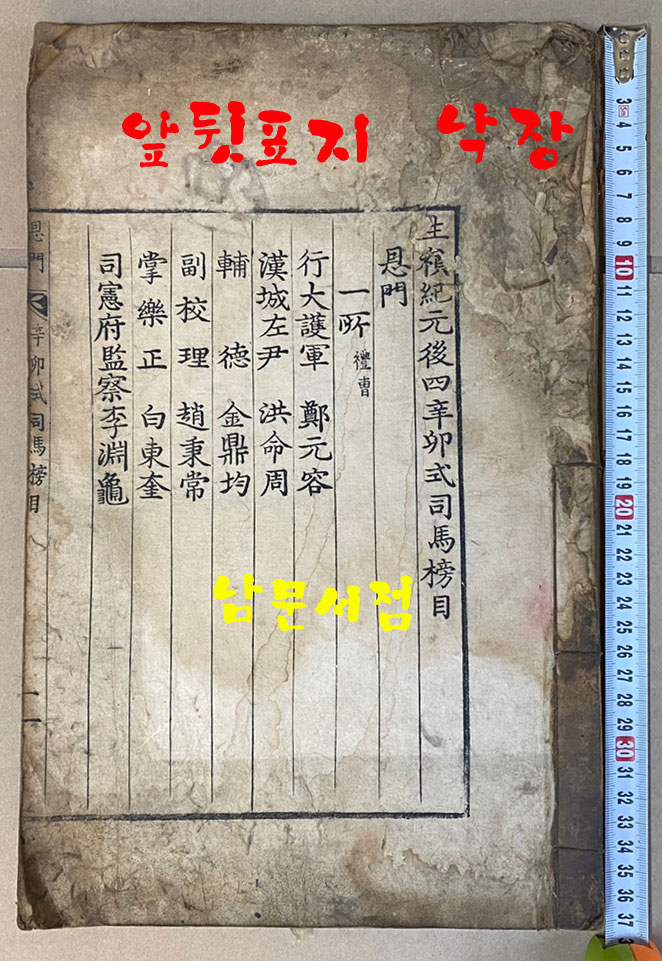 앞뒷표지 낙장
主㺚紀元後四辛卯式司馬榜目
恩門
一所 禮曹
行大護軍 鄭元容
漢城左尹 洪命周
輔德 金鼎均
副校理 趙秉常
掌樂正 白東奎
司憲府監察李淵龜
恩門 辛卯式司馬榜目
남문서점
3 4 5 6 7 8 9 10 11 12 13 14 15 16 17 18 19 20 21 22 23 24 25 26 27 28 29 30 31 32 33 34 35 36 37